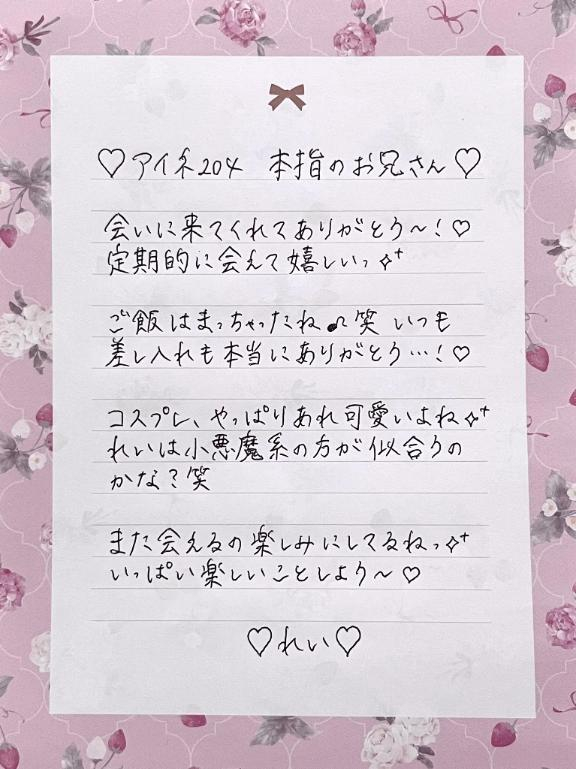 ♡アイネ204 本指のお兄さん♡
会いに来てくれてありがとう〜!♡
定期的に会えて嬉しいっ✧⁺
ご飯はまっちゃったね♫笑 いつも
差し入れも本当にありがとう…!♡
コスプレ、やっぱりあれ可愛いよね✧⁺
れいは小悪魔系の方が似合うの
かな?笑
また会えるの楽しみにしてるねっ✧⁺
いっぱい楽しいことしよう〜♡
♡れい♡